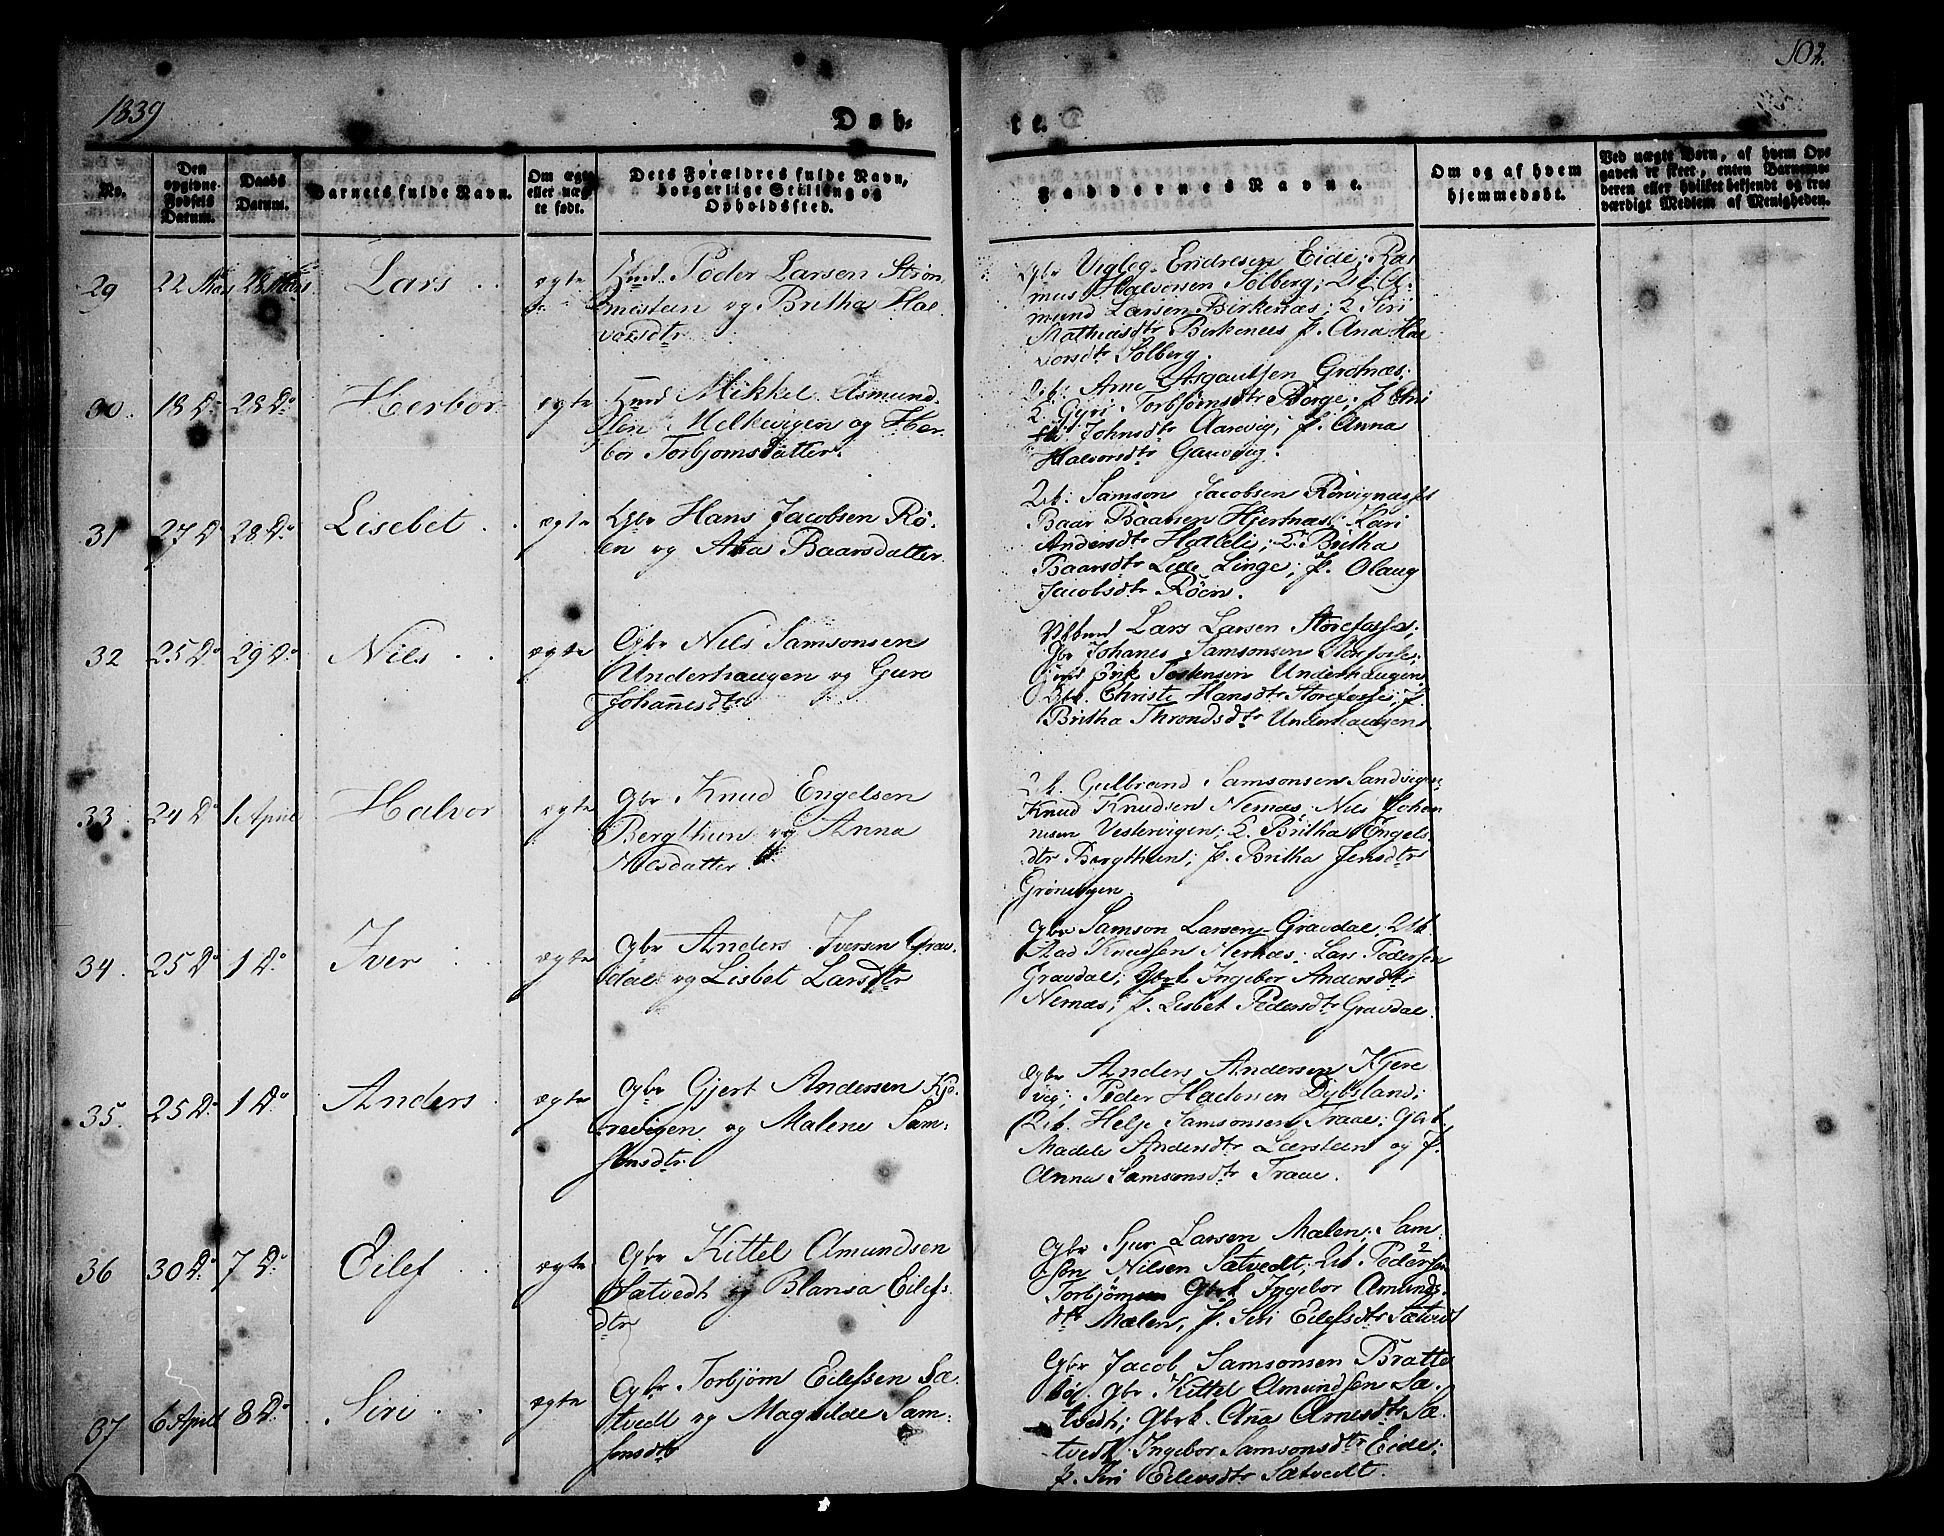 1839
102.
Døb-
te.
No.
Den opgivne Fødsels Datum.
Daabs Datum.
Barnets fulde Navn.
Om ægte eller uægte født.
Dets Forældres fulde Navn, borgerlige Stilling og Opholdssted.
Faddernes Navne.
Om og af hvem hjemmedøbt.
Ved uægte Børn, af hvem Opgaven er skeet, enten Barnemoderen eller hvilket bekjendt og troværdigt Medlem af Menigheden.
29 22 Mars 28 Mars Lars ægte
Peder Larsen Strøm-
mesteen og Britha Hal-
vorsdtr
Gbr Vigleg Endresen Eide, Ras
mus Halvorsen Sølberg; A-
mund Larsen Birkenæs; Siri
Mathiasdtr Birkenes P. Ana Hal
vorsdtr Sølberg.
30. 18 Do 28 Do Herbor ægte
Mikkel Asmund-
sen Melkevigen og Her-
bor Torbjornsdatter.
Arne Asgautsen Grotnæs;
Gyri Torbjørnsdtr Børge; P. Chri
Johnsdtr Aarvig; P. Anna
Halvorsdtr Gauvig.
31 27 Do 28 Do Lisebet ægte
Gbr Hans Jacobsen Rø-
en og Ana Baarsdatter
Samson Jacobsen Rørvignæsset
Baar Baarsen Hjertnæs; Kari
Andersdtr; Britha
Baarsdtr Linge; P. Olaug
Jacobsdtr Røen.
32 25 Do 29 Do Niels ægte
Gbr Niels Samsonsen
Underhaugen og Guro
Johannesdtr
Lars Larsen Storefosse;
Gbr Johanes Samsonsen Storfosse;
Erik Torkensen Underhaugen
Christi Hansdtr Storefosse; P.
Britha Throndsdtr Underhaugen
33 24 Do 1 April Halvor ægte
Gbr Knud Engelsen
Bergthun og Anna
Nilsdatter.
Gulbrand Samsonsen Sandvigen
Knud Knudsen Nernæs; Nils Johan
nesen Vestervigen; Britha Engels-
dtr Bergthun; P. Britha Jensdtr
Grønevigen
34. 25 Do 1 Do Iver ægte
Gbr Anders Iversen Grav-
dal og Lisbet Larsdtr
Gbr Samson Larsen Gravdal,
Knudsen Nernæs; Lars Pedersen
Gravdal, Gbrk Ingebor Andersdtr
Nernæs; P. Lisbet Pedersdtr Gravdal.
35. 25 Do 1 Do Anders ægte
Gbr Gjert Andersen Kje-
revigen og Malene Sam-
sonsdtr.
Gbr Anders Andersen Kjere
vig; Peder Dybsland;
Helje Samsonsen Traae; Gbrk
Madele Andersdtr Leersteen og P.
Anna Samsonsdtr Traae.
36 30 Do 7 Do Eilef ægte
Gbr Kittel Amundsen
Sætvedt og Blansa Eilefs-
dtr
Gbr Larsen Mælen; Sam-
son Nilsen Sætvedt; Peder
Torbjørn Gbrk Ingebor Amunds-
dtr Mælen, P. Siri Eilefsdtr Sætvedt
37 6 April 8 Do Siri ægte
Gbr Torbjørn Eilefsen Sæ-
tvedt og Magnilde Sam-
sonsdtr
Gbr Jacob Samsonsen Bratte
bø, Gbr Kittel Amundsen Sæ-
tvedt; Gbrk. Ana Arnesdtr Sæ-
tvedt Ingebor Samsonsdtr Eide;
P. Siri Eilevsdtr Sætvedt.